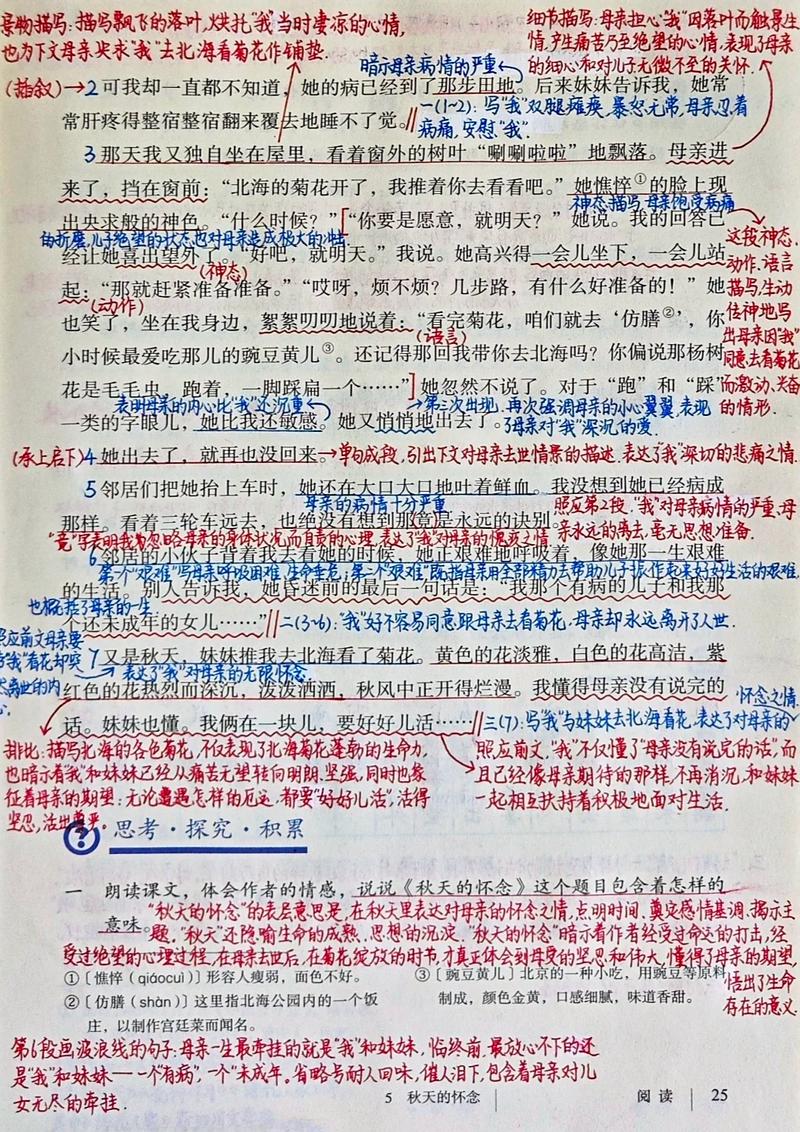 景物描写:描写飘飞的落叶,烘托“我”当时凄凉的心情,
也为下文母亲央求“我”去北海看菊花作铺垫.
细节描写:母亲担心“我”因落叶而触景生
情,产生痛苦乃至绝望的心情,表现了母亲
的细心和对儿子无微不至的关怀.
暗示母亲病情的严重
(插叙)→2 可我却一直都不知道,她的病已经到了那步田地。后来妹妹告诉我,她常
一(1~2):写“我”双腿瘫痪,暴怒无常,母亲忍着
常肝疼得整宿整宿翻来覆去地睡不了觉。
病痛,安慰“我”.
3 那天我又独自坐在屋里,看着窗外的树叶“唰唰啦啦”地飘落。母亲进
来了,挡在窗前:“北海的菊花开了,我推着你去看看吧。”她憔悴①的脸上现
神态描写,母亲饱受病痛
出央求般的神色。“什么时候?”“你要是愿意,就明天?”她说。我的回答已
的折磨,儿子绝望的状态也对母亲造成极大的
经让她喜出望外了。“好吧,就明天。”我说。她高兴得一会儿坐下,一会儿站
(神态)
起:“那就赶紧准备准备。”“哎呀,烦不烦?几步路,有什么好准备的!”她
(动作)
也笑了,坐在我身边,絮絮叨叨地说着:“看完菊花,咱们就去‘仿膳②’,你
(语言)
小时候最爱吃那儿的豌豆黄儿③。还记得那回我带你去北海吗?你偏说那杨树
花是毛毛虫,跑着,一脚踩扁一个……”她忽然不说了。对于“跑”和“踩”
这段神态、
动作、语言
描写,生动
传神地写
出母亲因“我”
同意去看菊花
而激动、兴奋
的情形.
表明母亲的内心比“我”还沉重
→第三次出现,再次强调母亲的小心翼翼,表现
一类的字眼儿,她比我还敏感。她又悄悄地出去了。
了母亲对“我”深沉的爱.
(承上启下)4 她出去了,就再也没回来。→单句成段,引出下文对母亲去世情景的描述.表达了“我”深切的悲痛之情.
5 邻居们把她抬上车时,她还在大口大口地吐着鲜血。我没想到她已经病成
母亲的病情十分严重
照应第2段,“我”对母亲病情的严重、母
那样。看着三轮车远去,也绝没有想到那竟是永远的诀别。
亲永远的离去,毫无思想准备.
“竟”字表明我为忽略母亲的身体状况而自责的心理,表达了“我”对母亲的愧疚之情
6 邻居的小伙子背着我去看她的时候,她正艰难地呼吸着,像她那一生艰难
第一个“艰难”写母亲呼吸困难,生命垂危;第二个“艰难”既指母亲用全部精力去帮助儿子振作起来好好生活的艰难,
的生活。别人告诉我,她昏迷前的最后一句话是:“我那个有病的儿子和我那
也概括了母亲的一生
个还未成年的女儿……”
二(3~6):“我”好不容易同意跟母亲去看菊花,母亲却永远离开了人世.
照应前文母亲要
7 又是秋天,妹妹推我去北海看了菊花。黄色的花淡雅,白色的花高洁,紫
表达了“我”对母亲的无限怀念.
红色的花热烈而深沉,泼泼洒洒,秋风中正开得烂漫。我懂得母亲没有说完的
话。妹妹也懂。我俩在一块儿,要好好儿活……
三(7):写“我”与妹妹去北海看花,表达了对母亲的
怀念之情.
排比:描写北海的各色菊花,不仅表现了北海菊花蓬勃的生命力,
也暗示着“我”和妹妹已经从痛苦无望转向明朗、坚强,同时也象
征着母亲的期望:无论遭遇怎样的厄运,都要“好好儿活”,活得
坚忍,活出尊严.
照应前文,“我”不仅懂了“母亲没有说完的话”,而
且已经像母亲期待的那样,不再消沉,和妹妹
一起相互扶持着积极地面对生活.
思考·探究·积累
一 朗读课文,体会作者的情感,说说《秋天的怀念》这个题目包含着怎样的
意味。
“秋天的怀念”的表层意思是,在秋天里表达对母亲的怀念之情,点明时间、奠定感情基调、揭示主
题.“秋天”还隐喻生命的成熟、思想的沉淀.“秋天的怀念”暗示着作者经受过命运的打击,经
受过绝望的心理过程,在母亲去世后,在菊花绽放的时节,才真正体会到母爱的坚忍和伟大,懂得了母亲的期望,
悟出了生命
存在的意义.
①〔憔悴(qiáocuì)〕形容人瘦弱,面色不好。
②〔仿膳(shàn)〕这里指北海公园内的一个饭
庄,以制作宫廷菜而闻名。
③〔豌豆黄儿〕北京的一种小吃,用豌豆等原料
制成,颜色金黄,口感细腻,味道香甜。
第6段画波浪线的句子:母亲一生最牵挂的就是“我”和妹妹,临终前,最放心不下的还
是“我”和妹妹——一个“有病”,一个“未成年”.省略号耐人回味,催人泪下,包含着母亲对儿
女无尽的牵挂.
5 秋天的怀念
阅读 25